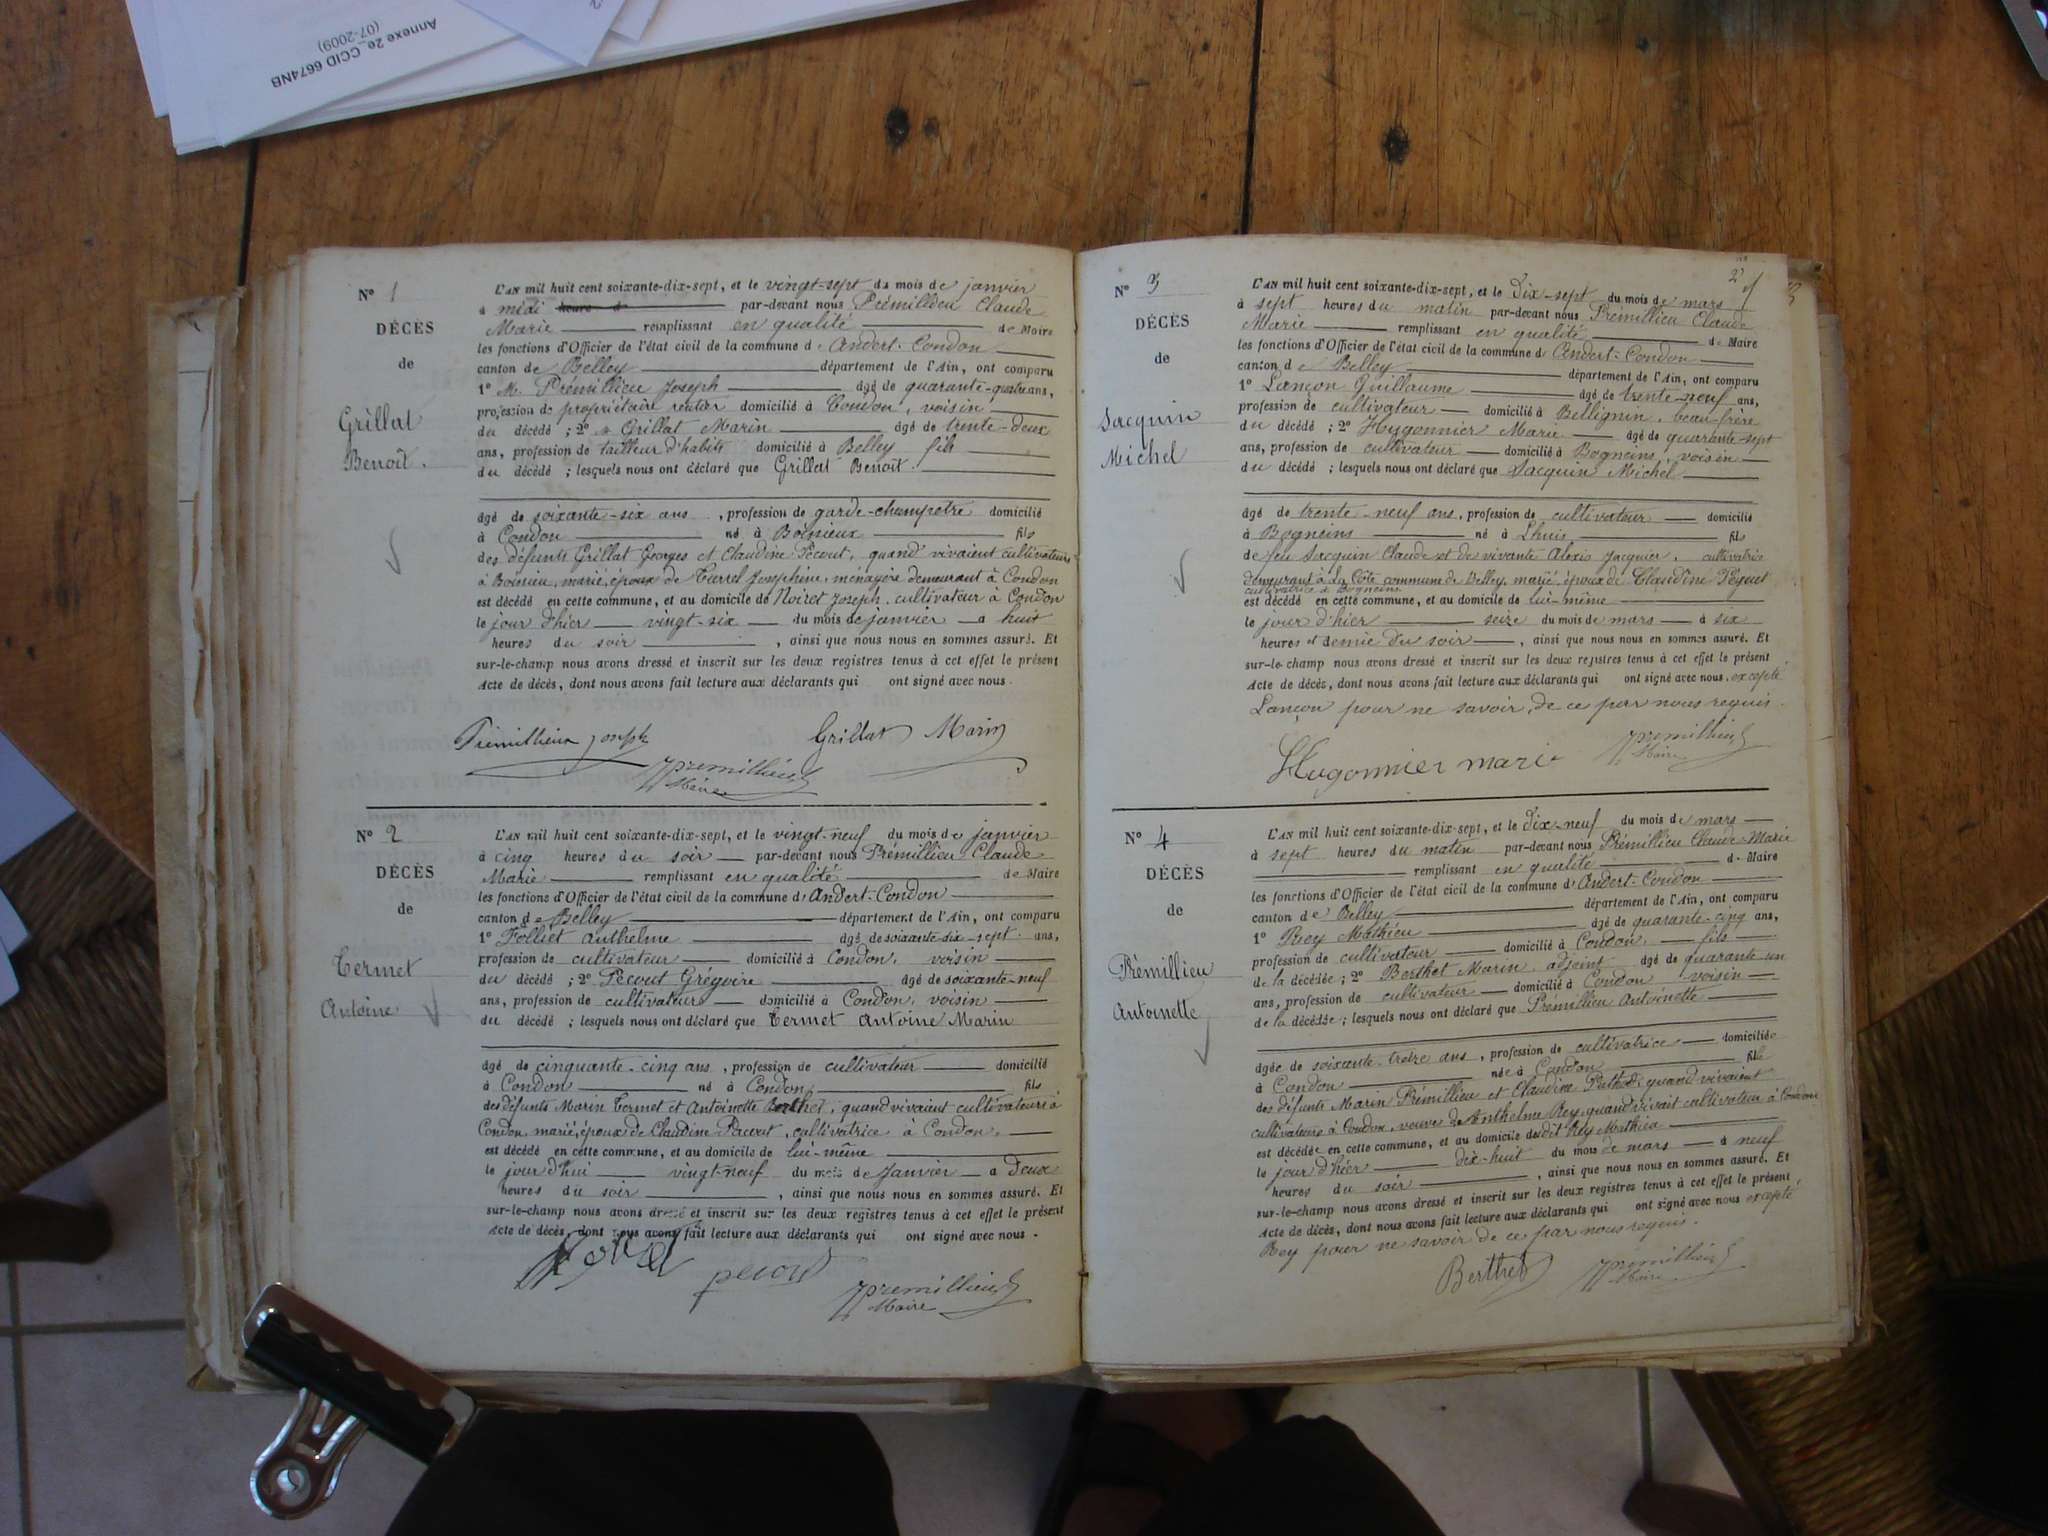 Annexe 2e_CCID 6674NB
(07-2009)
N° 1
DÉCÈS
de
Grillat
Benoit.
L'AN mil huit cent soixante-dix-sept, et le vingt-sept du mois de janvier
à midi heure d par-devant nous Prémillieu Claude
Marie remplissant en qualité de Maire
les fonctions d'Officier de l'état civil de la commune d'Andert-Condon
canton de Belley département de l'Ain, ont comparu
1° M. Prémillieu Joseph âgé de quarante-quatre ans,
profession de propriétaire rentier domicilié à Condon, voisin
du décédé ; 2° Grillat Marin âgé de trente-deux
ans, profession de tailleur d'habits domicilié à Belley fils
du décédé ; lesquels nous ont déclaré que Grillat Benoit
âgé de soixante-six ans, profession de garde-champetre domicilié
à Condon né à Boissieux fils
des défunts Grillat Georges et Claudine Pecout, quand vivaient cultivateurs
à Boissieu, marié, époux de Turrel Josephine, ménagère demeurant à Condon
est décédé en cette commune, et au domicile de Noiret Joseph, cultivateur à Condon
le jour d'hier vingt-six du mois de janvier à huit
heures du soir, ainsi que nous nous en sommes assuré. Et
sur-le-champ nous avons dressé et inscrit sur les deux registres tenus à cet effet le présent
Acte de décès, dont nous avons fait lecture aux déclarants qui ont signé avec nous.
Prémillieux Joseph Grillat Marin
Premillieu
Maire
N° 2
DÉCÈS
de
Termet
Antoine
L'AN mil huit cent soixante-dix-sept, et le vingt-neuf du mois de janvier
à cinq heures du soir par-devant nous Prémillieu Claude
Marie remplissant en qualité de Maire
les fonctions d'Officier de l'état civil de la commune d'Andert-Condon
canton de Belley département de l'Ain, ont comparu
1° Folliet Anthelme âgé de soixante-dix-sept ans,
profession de cultivateur domicilié à Condon, voisin
du décédé ; 2° Pecout Grégoire âgé de soixante-neuf
ans, profession de cultivateur domicilié à Condon, voisin
du décédé ; lesquels nous ont déclaré que Termet Antoine Marin
âgé de cinquante-cinq ans, profession de cultivateur domicilié
à Condon né à Condon, fils
des défunts Marin Termet et Antoinette Berthet, quand vivaient cultivateurs à
Condon, marié, époux de Claudine Pacout, cultivatrice à Condon,
est décédé en cette commune, et au domicile de lui-même
le jour d'hui vingt-neuf du mois de Janvier à deux
heures du soir, ainsi que nous nous en sommes assuré. Et
sur-le-champ nous avons dressé et inscrit sur les deux registres tenus à cet effet le présent
Acte de décès, dont nous avons fait lecture aux déclarants qui ont signé avec nous.
pecout
Premillieu
Maire
2
N° 3
DÉCÈS
de
Sacquin
Michel
L'AN mil huit cent soixante-dix-sept, et le dix-sept du mois de mars
à sept heures du matin par-devant nous Prémillieu Claude
Marie remplissant en qualité de Maire
les fonctions d'Officier de l'état civil de la commune d'Andert-Condon
canton de Belley département de l'Ain, ont comparu
1° Lançon Guillaume âgé de trente-neuf ans,
profession de cultivateur domicilié à Bellignin, beau-frère
du décédé ; 2° Hugonnier Marie âgé de quarante-sept
ans, profession de cultivateur domicilié à Bognens, voisin
du décédé ; lesquels nous ont déclaré que Sacquin Michel
âgé de trente-neuf ans, profession de cultivateur domicilié
à Bogneins né à Lhuis fils
de feu Sacquin Claude et de vivante Alexis Jacquier, cultivatrice
demeurant à La Côte commune de Belley, marié, époux de Claudine Peyret
cultivatrice à Bogneins
est décédé en cette commune, et au domicile de lui-même
le jour d'hier seize du mois de mars à six
heures et demie du soir, ainsi que nous nous en sommes assuré. Et
sur-le-champ nous avons dressé et inscrit sur les deux registres tenus à cet effet le présent
Acte de décès, dont nous avons fait lecture aux déclarants qui ont signé avec nous, excepté
Lançon pour ne savoir, de ce par nous requis.
Hugonnier marie
Premillieu
Maire
N° 4
DÉCÈS
de
Prémillieu
Antoinette
L'AN mil huit cent soixante-dix-sept, et le dix-neuf du mois de mars
à sept heures du matin par-devant nous Prémillieu Claude-Marie
remplissant en qualité de Maire
les fonctions d'Officier de l'état civil de la commune d'Andert-Condon
canton de Belley département de l'Ain, ont comparu
1° Rey Mathieu âgé de quarante-cinq ans,
profession de cultivateur domicilié à Condon, fils
de la décédée ; 2° Berthet Marin, adjoint âgé de quarante-un
ans, profession de cultivateur domicilié à Condon voisin
de la décédée ; lesquels nous ont déclaré que Prémillieu Antoinette
âgée de soixante-treize ans, profession de cultivatrice domiciliée
à Condon née à Condon fille
des défunts Marin Prémillieu et Claudine Puthod, quand vivaient
cultivateurs à Condon, veuve de Anthelme Rey, quand vivait cultivateur à Condon
est décédée en cette commune, et au domicile dudit Rey Mathieu
le jour d'hier dix-huit du mois de mars à neuf
heures du soir, ainsi que nous nous en sommes assuré. Et
sur-le-champ nous avons dressé et inscrit sur les deux registres tenus à cet effet le présent
Acte de décès, dont nous avons fait lecture aux déclarants qui ont signé avec nous excepté
Rey pour ne savoir de ce par nous requis.
Berthet
Premillieu
Maire